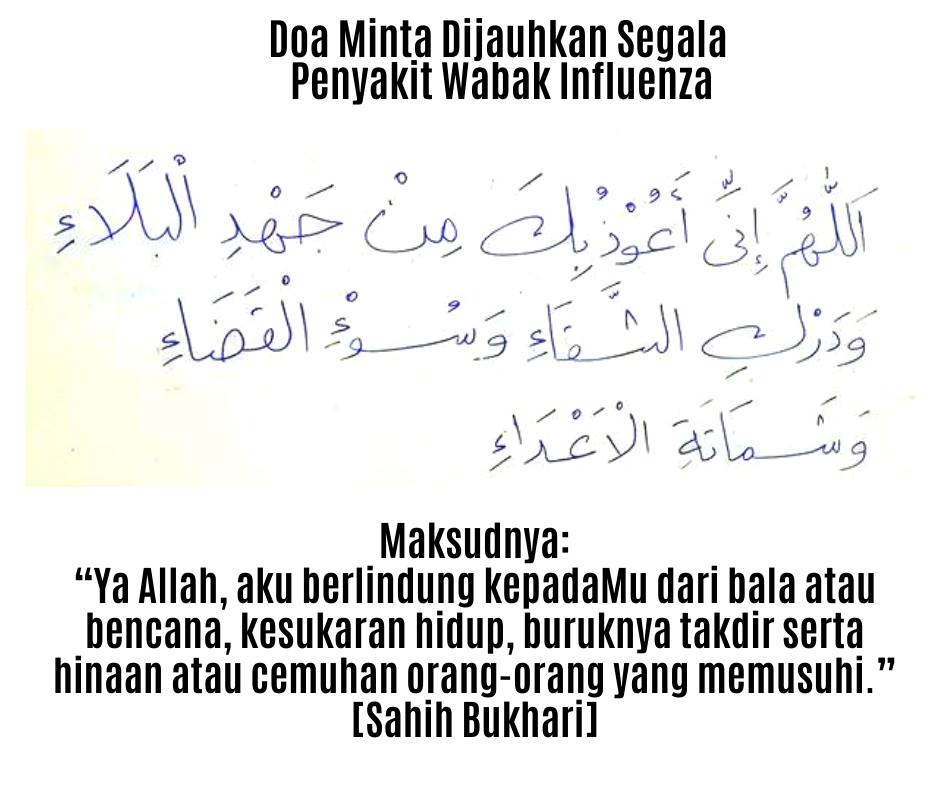 Doa Minta Dijauhkan Segala
Penyakit Wabak Influenza
اَللّٰهُمَّ إِنِّي أَعُوْذُبِكَ مِنْ جَهْدِ الْبَلَاءِ
وَدَرْكِ الشَّقَاءِ وَسُوْءِ الْقَضَاءِ
وَشَمَاتَةِ الْاَعْدَاءِ
Maksudnya:
“Ya Allah, aku berlindung kepadaMu dari bala atau
bencana, kesukaran hidup, buruknya takdir serta
hinaan atau cemuhan orang-orang yang memusuhi.”
[Sahih Bukhari]